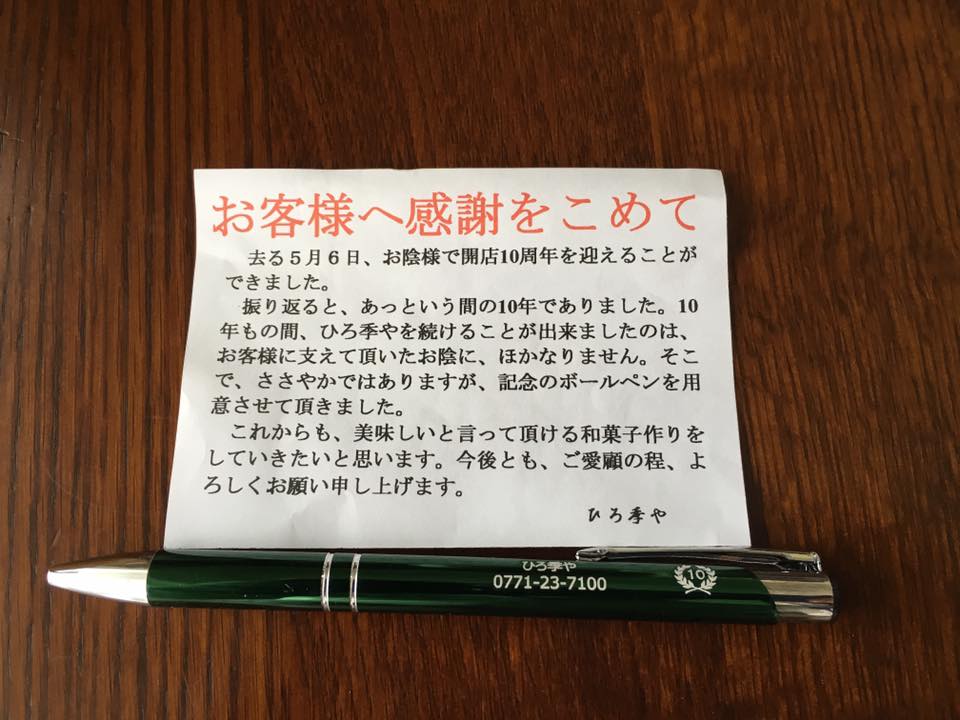 お客様へ感謝をこめて
去る５月６日、お陰様で開店10周年を迎えることが
できました。
振り返ると、あっという間の10年でありました。10
年もの間、ひろ季やを続けることが出来ましたのは、
お客様に支えて頂いたお陰に、ほかなりません。そこ
で、ささやかではありますが、記念のボールペンを用
意させて頂きました。
これからも、美味しいと言って頂ける和菓子作りを
していきたいと思います。今後とも、ご愛顧の程、よ
ろしくお願い申し上げます。
ひろ季や
ひろ季や
0771-23-7100
10